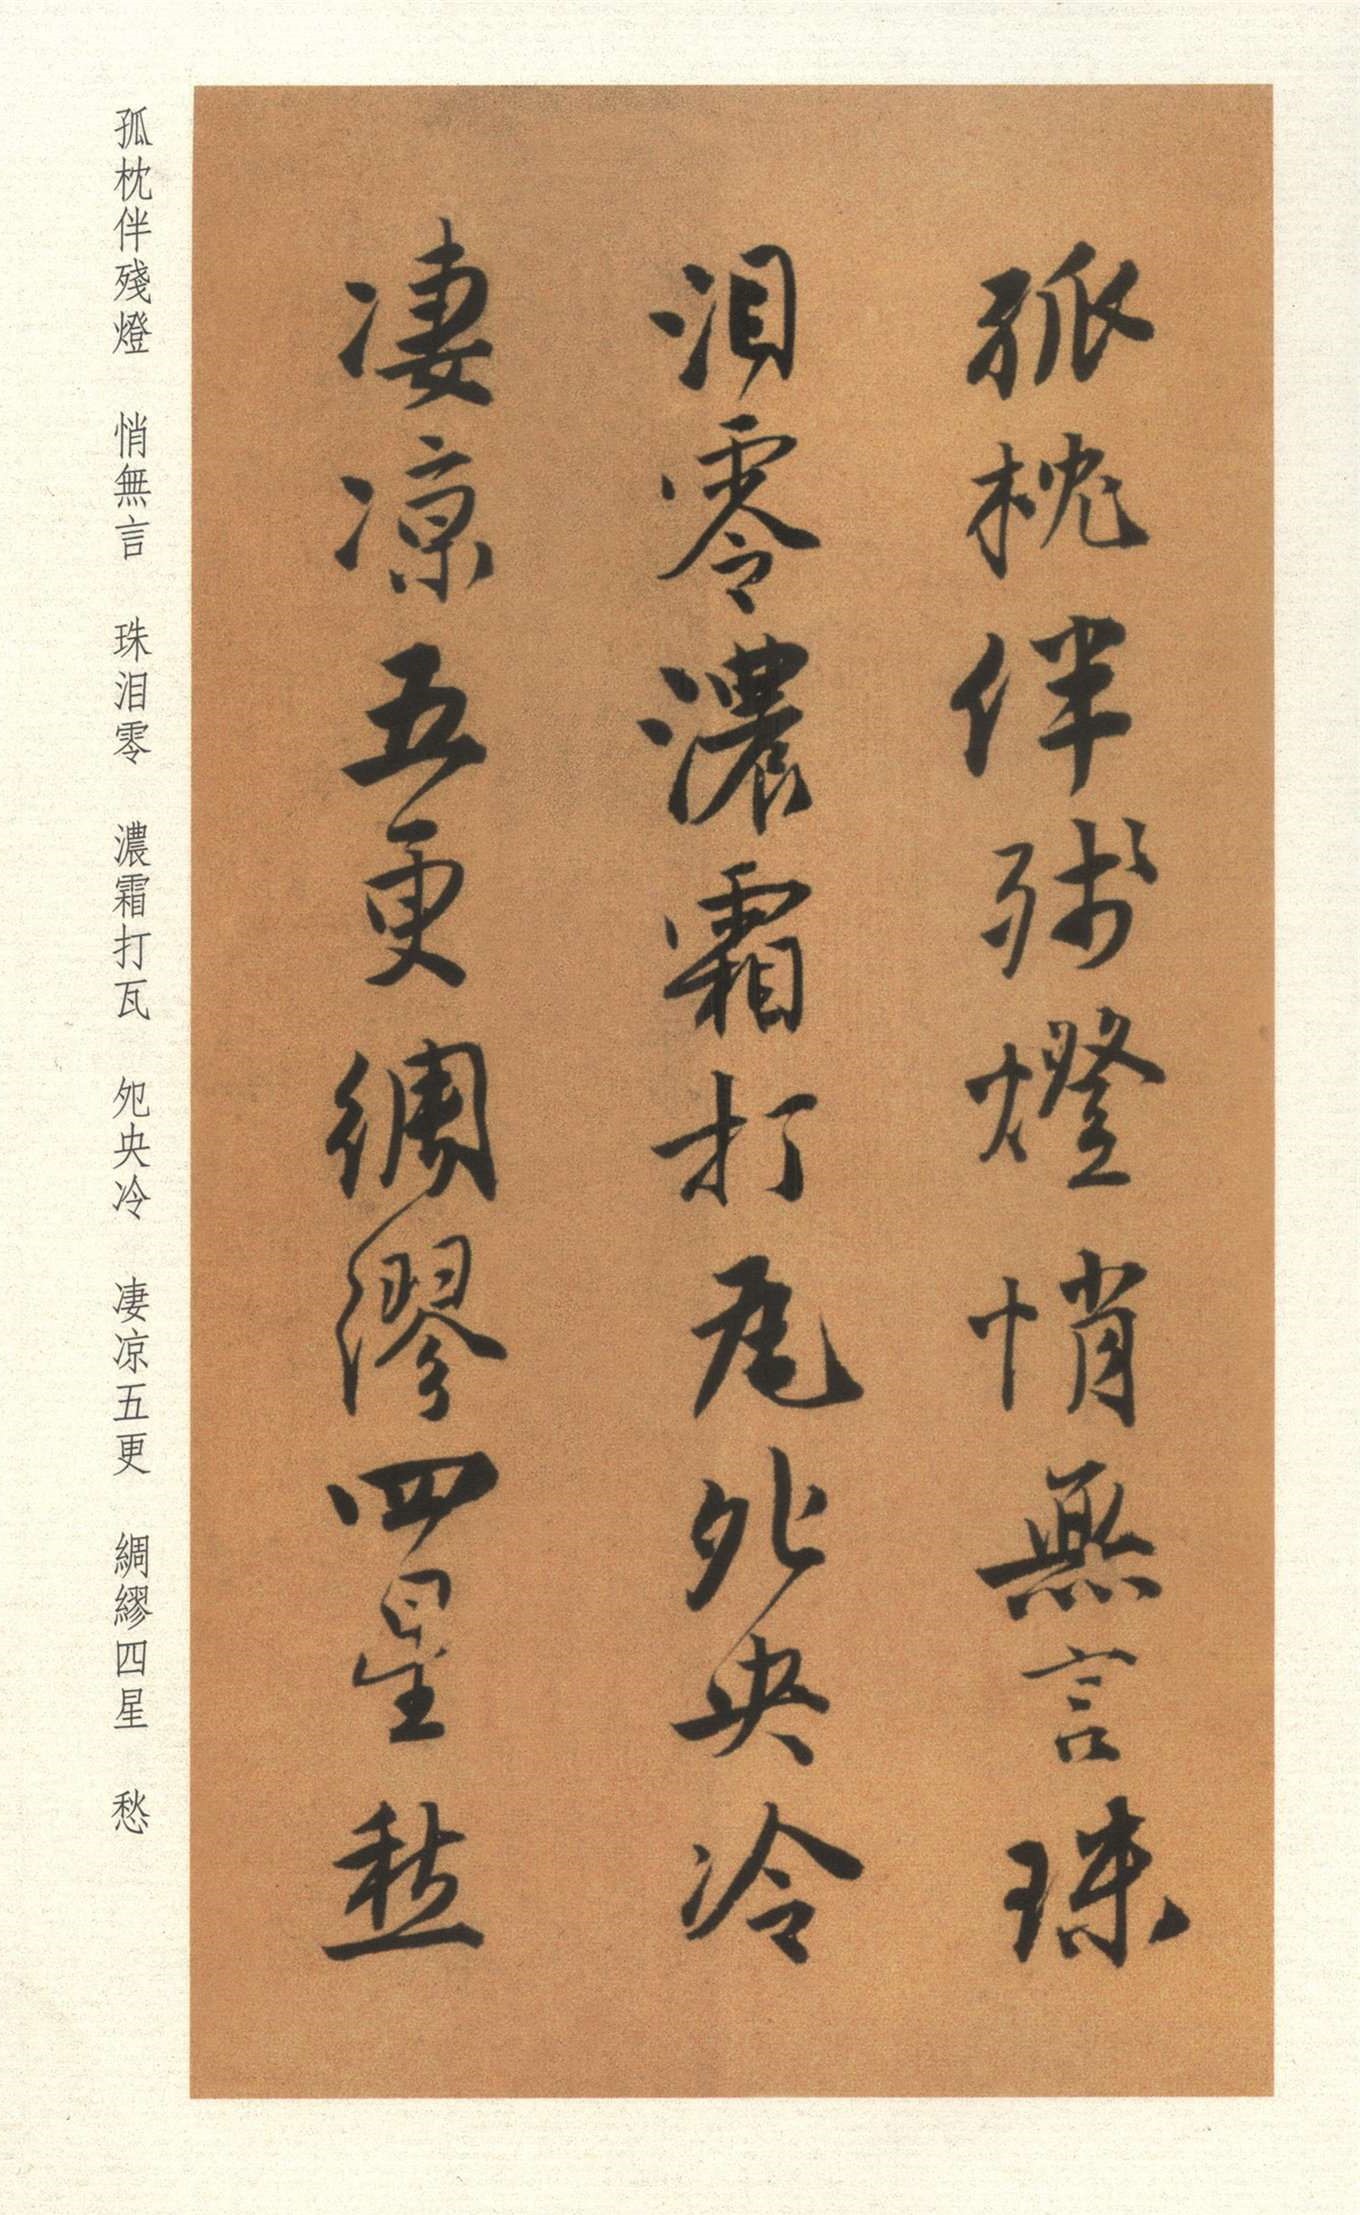 孤枕伴殘燈悄無言珠
泪零濃霜打瓦夗央冷
凄凉五更綢繆四星愁
孤枕伴殘燈　悄無言　珠泪零　濃霜打瓦　夗央冷　凄凉五更　綢繆四星　愁